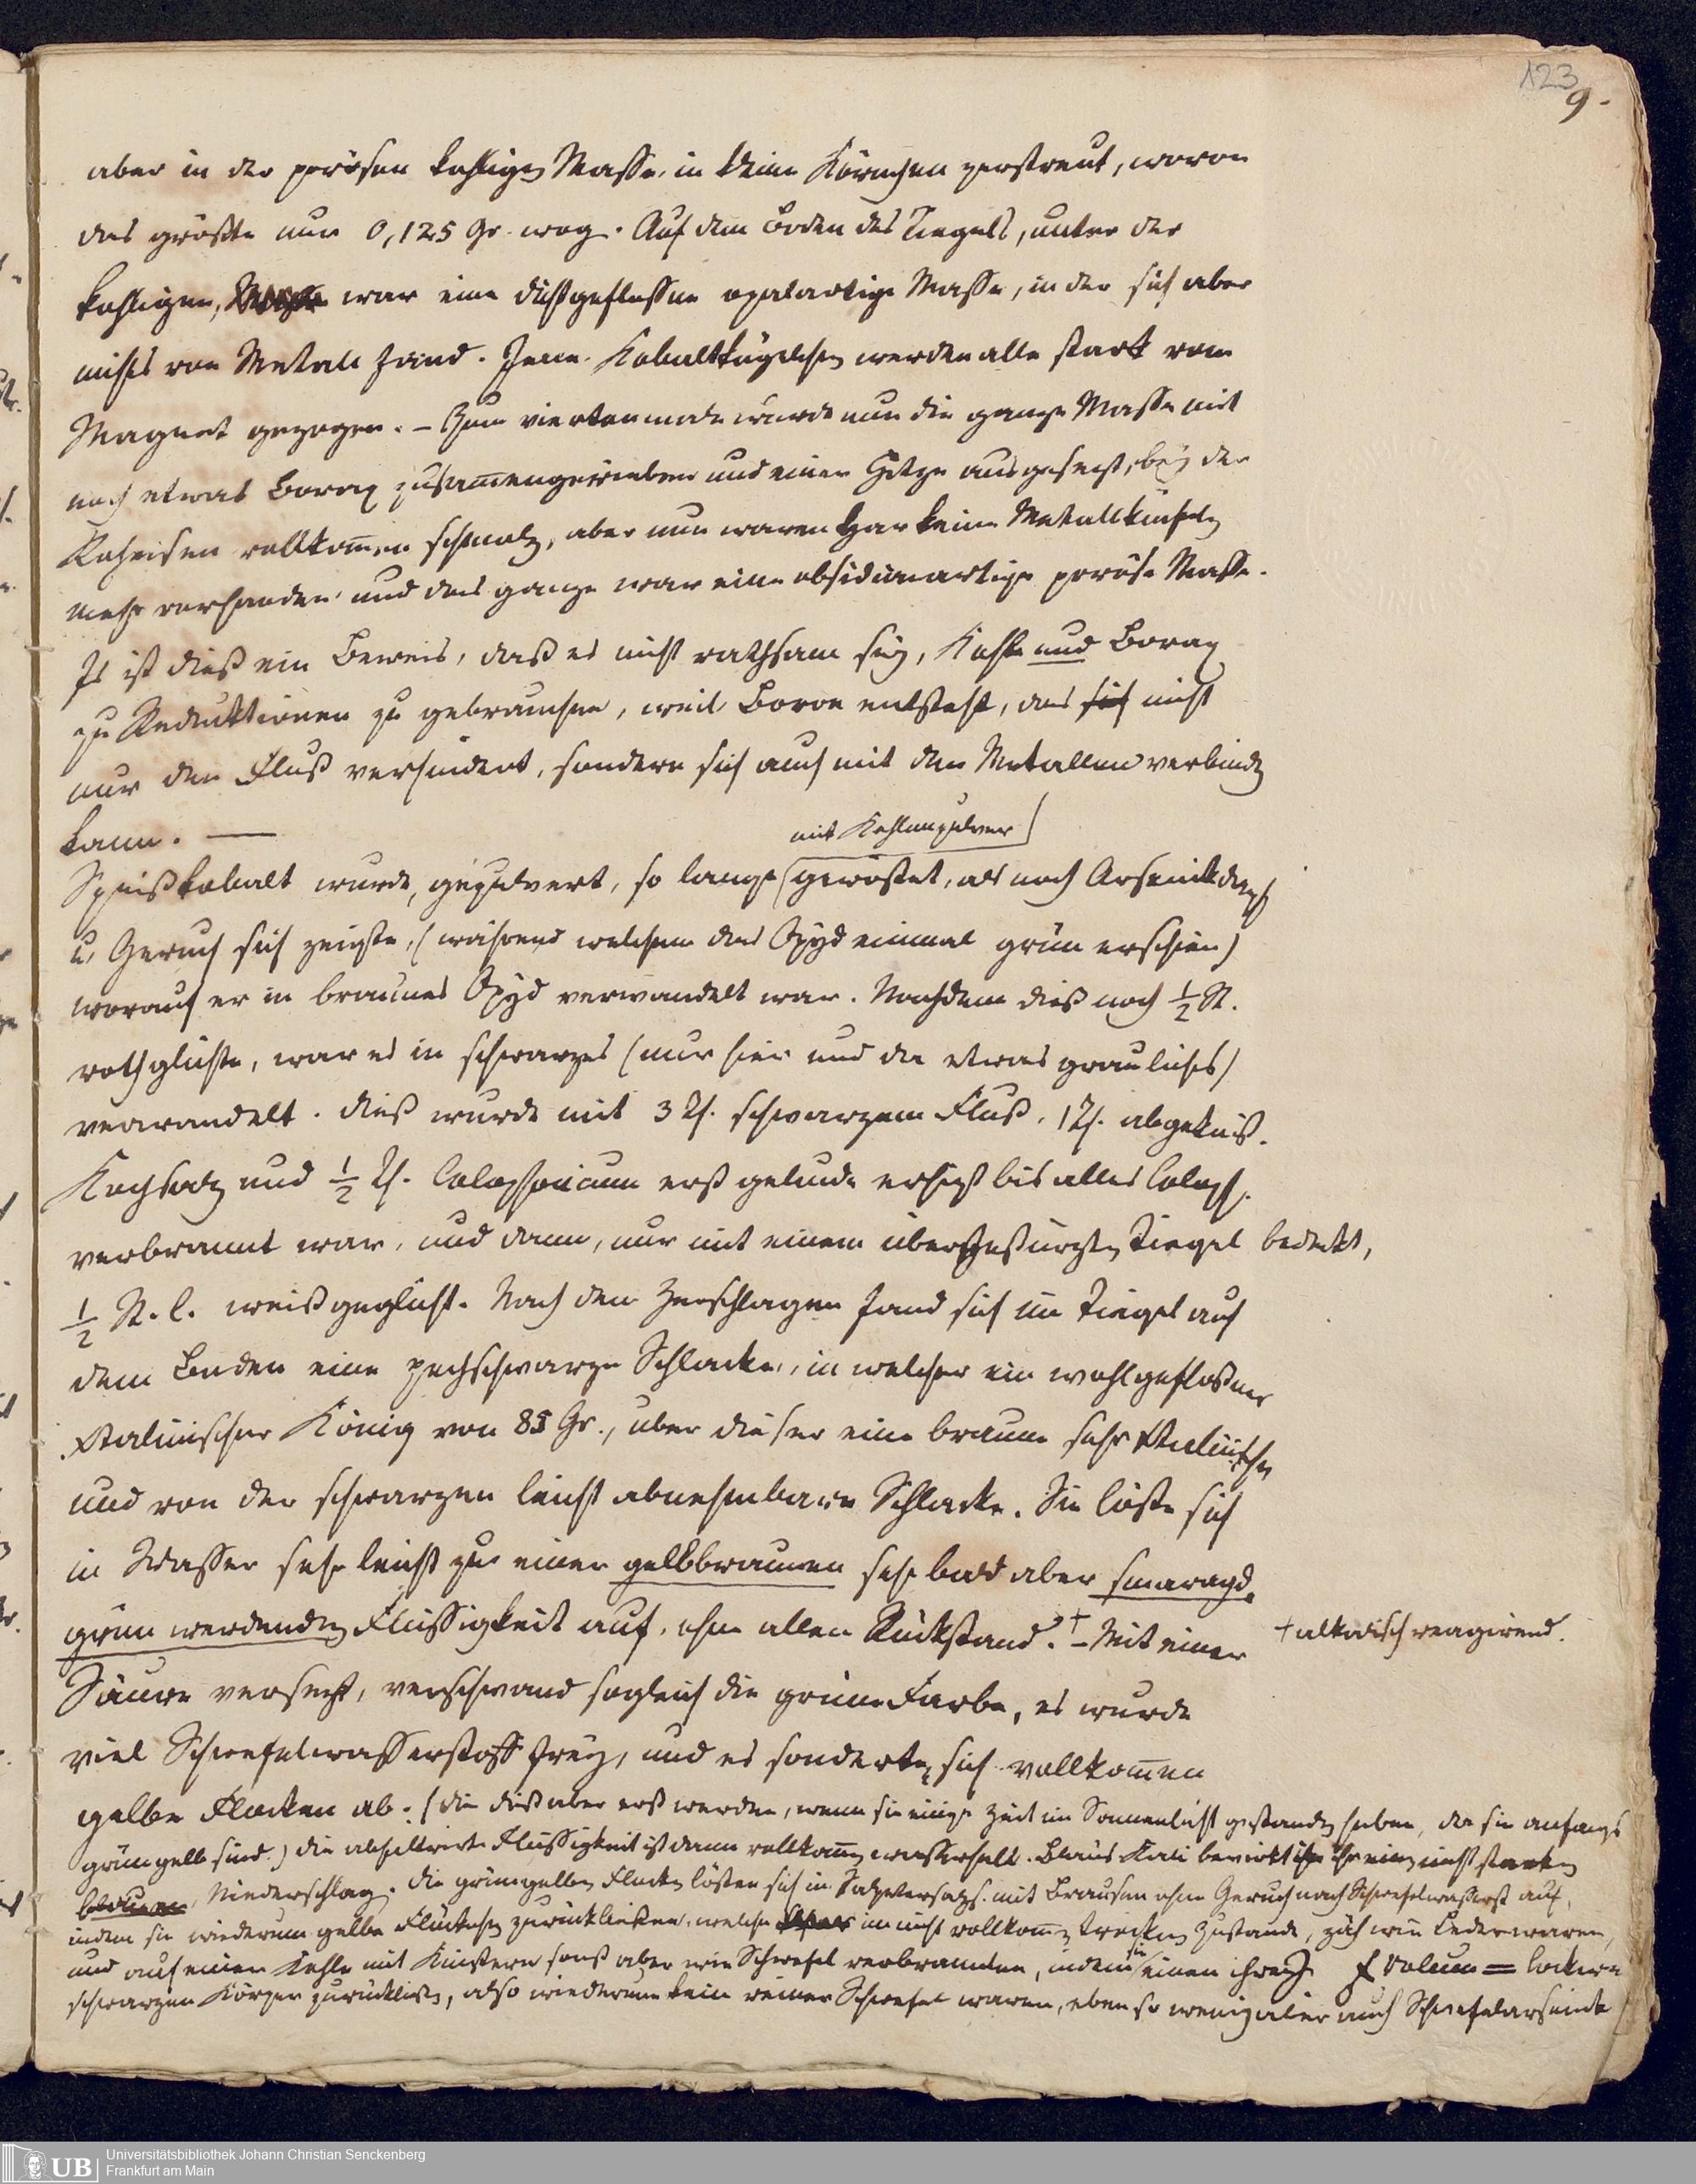 123
9.
aber in der porösen kohligen Masse, in kleine Körnchen zerstreut, wovon
das größte nur 0,125 Gr. wog. Auf dem Boden des Tiegels, unter der
kohligen, war eine dichtgeflossne opalartige Masse, in der sich aber
nichts von Metall fand. Jene Kobaltkügelchen werden alle stark vom
Magnet gezogen. – Zum viertenmale wurde nun die ganze Masse mit
noch etwas Borax zusam̄engerieben und einer Hitze ausgesezt, bey der
Roheisen vollkom̄en schmolz, aber nun waren gar keine Metallkügelchen
mehr vorhanden und das ganze war eine obsidianartige poröse Masse.
Es ist dieß ein Beweis, daß es nicht rathsam sey, Kohle und Borax
zu Reduktionen zu gebrauchen, weil Boron entsteht, das sich nicht
nur den Fluß verhindert, sondern sich auch mit den Metallen verbinden
kann. —
mit Kohlenpulver
Speißkobalt wurde, gepulvert, so lange geröstet, als noch Arsenikdampf
u. Geruch sich zeigte, (während welchem das Oxyd einmal grün erschien)
worauf er in braunes Oxyd verwandelt war. Nachdem dieß noch ½ St.
rothglühte, war es in schwarzes (nur hier und da etwas grauliches)
verwandelt. Dieß wurde mit 3 Th. schwarzem Fluß, 1 Th. abgeknist.
Kochsalz und ½ Th. Colophonium erst gelinde erhizt bis alles Coloph.
verbrannt war, und dann, nur mit einem übergestürzten Tiegel bedeckt,
½ St. l. weißgeglüht. Nach dem Zerschlagen fand sich im Tiegel auf
dem Boden eine pechschwarze Schlacke, in welcher ein wohlgefloßner
König von 85 Gr., über dieser eine braune sehr
und von der schwarzen leicht abnehmbare Schlacke. Sie löste sich
in Wasser sehr leicht zu einer gelbbraunen sehr bald aber smaragd-
grün werdenden Flüssigkeit auf, ohne allen Rückstand.† – Mit einer
† alkalisch reagirend.
Säure versezt, verschwand sogleich die grüne Farbe, es wurde
viel Schwefelwasserstoff frey, und es sonderten sich vollkom̄en
gelbe Flocken ab. (die dieß aber erst werden, wenn sie einige Zeit im Sonnenlicht gestanden haben, da sie anfangs
grüngelb sind.) die abfiltrirte Flüssigkeit ist dann vollkom̄en wasserhell. Blaus. Kali bewirkt einen nicht starken
blauen Niederschlag. Die grüngelben Flocken lösten sich in Salpetersalzs. mit Brausen ohne Geruch nach Schwefelwasserst. auf,
indem sie wiederum gelbe Flöckchen zurückließen, welche im nicht vollkom̄en trocknen Zustande, zäh wie Leder waren,
und auf einer Kohle mit Knistern sonst aber wie Schwefel verbrannten, indem sie einen ihrem Volum = lockern
schwarzen Körper zurückließen, also wiederum kein reiner Schwefel waren, eben so wenig aber auch Schwefelarsenik
Universitätsbibliothek Johann Christian Senckenberg
Frankfurt am Main
UB